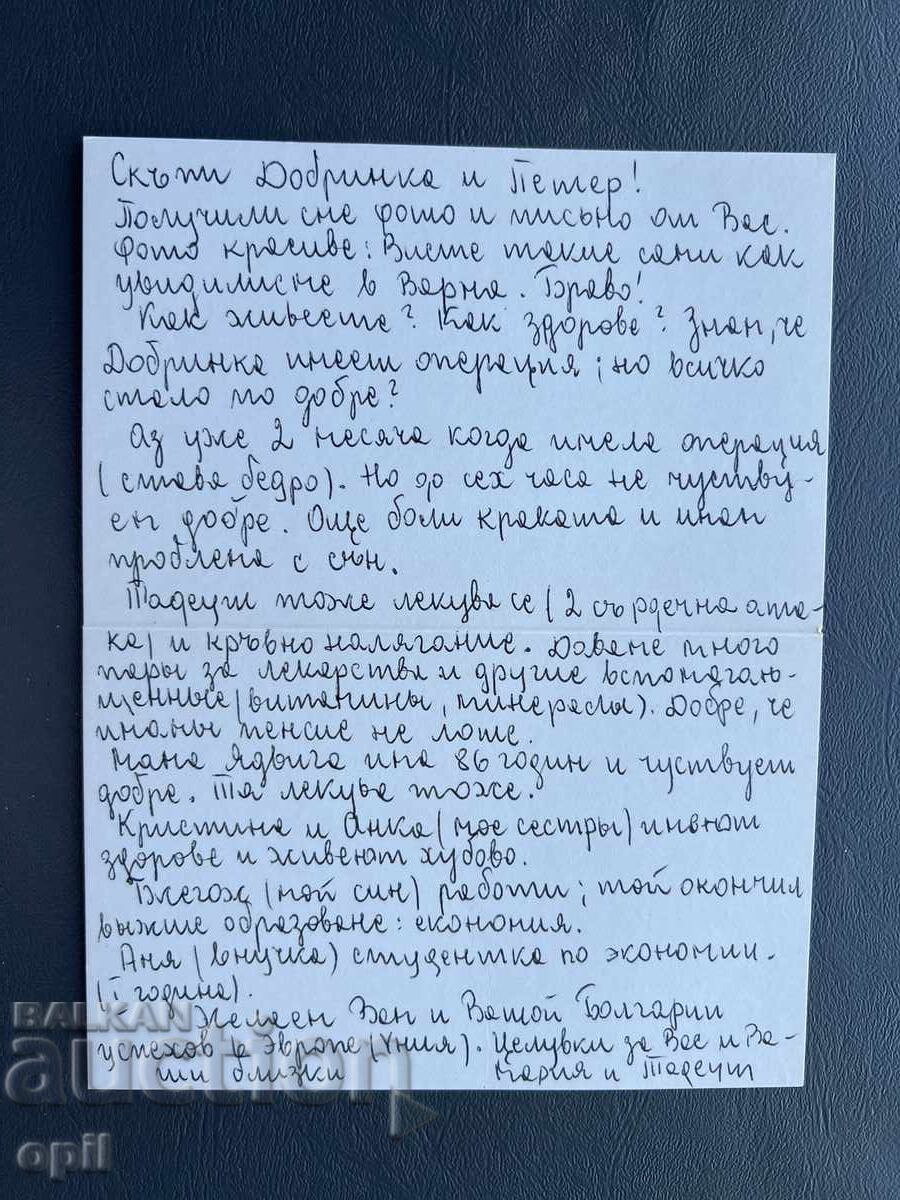 Скъпи Добринка и Петер!
Получили сме фото и письмо от Вас.
Фото красиве: Висте такие сами как
увидилисме в Варна. Браво!
Как живеете? Как здорове? Знам, че
Добринка имеет операция; но всичко
стало по добре?
Аз уже 2 месяча когда имела операция
(става бедро). Но до сех часа не чуству-
ем добре. Още боли краката и имам
проблема с сън.
Тадеуш тоже лекува се (2 сърдечна ата-
ка) и кръвно налягание. Даваме много
пары за лекарства и другие вспомагаю-
щенные (витамины, минералы). Добре, че
имамы пенсие не лоше.
Мама Ядвига има 86 годин и чуствует
добре. Тя лекува тоже.
Кристина и Анка (мое сестры) имеют
здорове и живеют хубово.
Гжегож (мой син) работи; той окончил
выжше образоване: економия.
Аня (внучка) студентка по экономии.
(I година).
Желаем Вам и Вашой Болгарии
успехов в Эвропе (Уния). Целувки за Вас и Ва-
ши близки Мария и Тадеуш
BALKAN
auction
opil